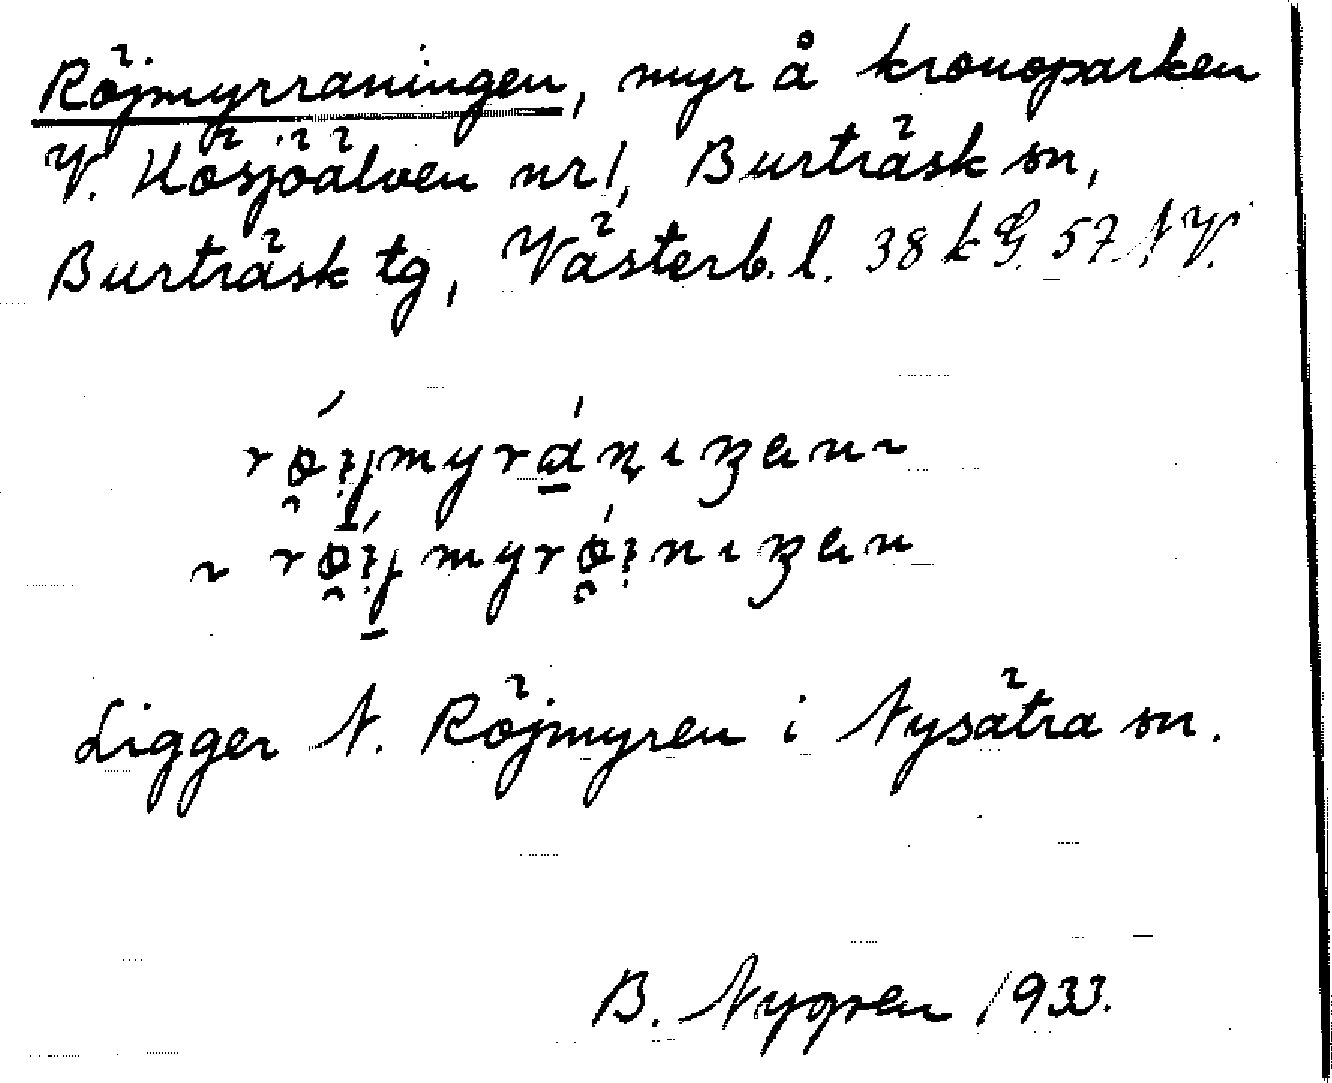 Röjmyrraningen, myr å kronoparken
V. Hösjöälven nr 1, Burträsk sn,
Burträsk tg, Västerb. l. 38 k G. 57 NV.
Ligger N. Röjmyren i Nysätra sn.
B. Nygren 1933.